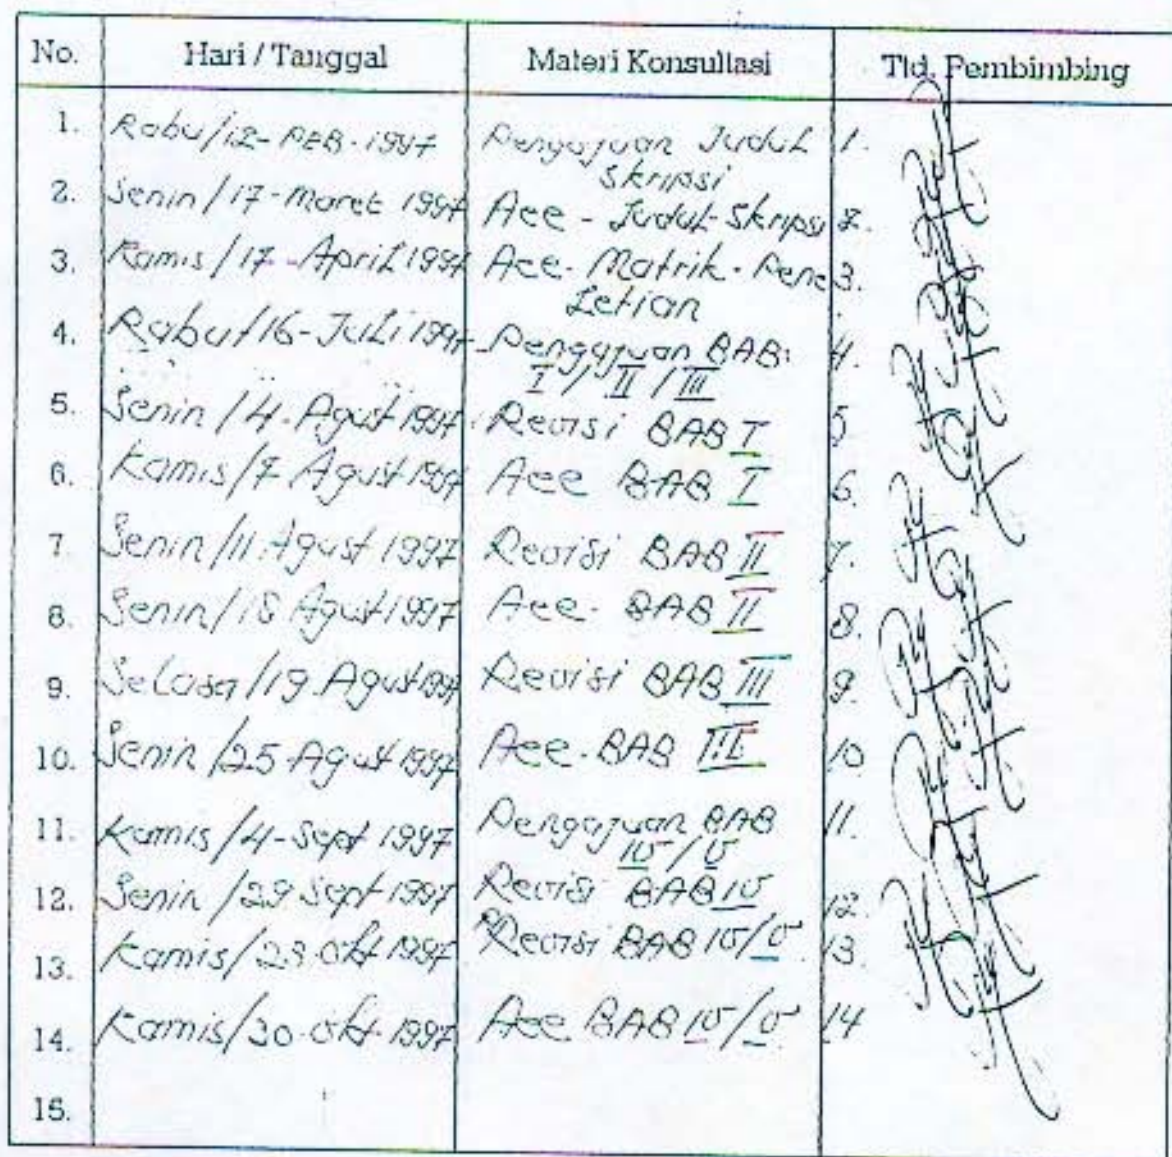 No. Hari / Tanggal Materi Konsultasi Ttd. Pembimbing
1. Rabu/12-PEB-1997 Pengajuan Judul 1.
Skripsi
2. Senin/17-Maret 1997 Acc - Judul-Skripsi 2.
3. Kamis/17-April 1997 Acc. Matrik. Pene 3.
Letian
4. Rabu/16-Juli 1997 Pengajuan BAB: 4.
I / II / III
5. Senin/4. Agust 1997 Revisi BAB I 5
6. Kamis/7 Agust 1997 Acc BAB I 6.
7. Senin/11 Agust 1997 Revisi BAB II 7.
8. Senin/18 Agust 1997 Acc. BAB II 8.
9. Selasa/19 Agust 1997 Revisi BAB III 9.
10. Senin/25-Agust 1997 Acc. BAB III 10
11. Kamis/4-Sept 1997 Pengajuan BAB 11.
IV / V
12. Senin/29 Sept 1997 Revisi BAB IV 12.
13. Kamis/23 Okt 1997 Revisi BAB IV/V 13.
14. Kamis/30-Okt 1997 Acc BAB IV/V 14
15.